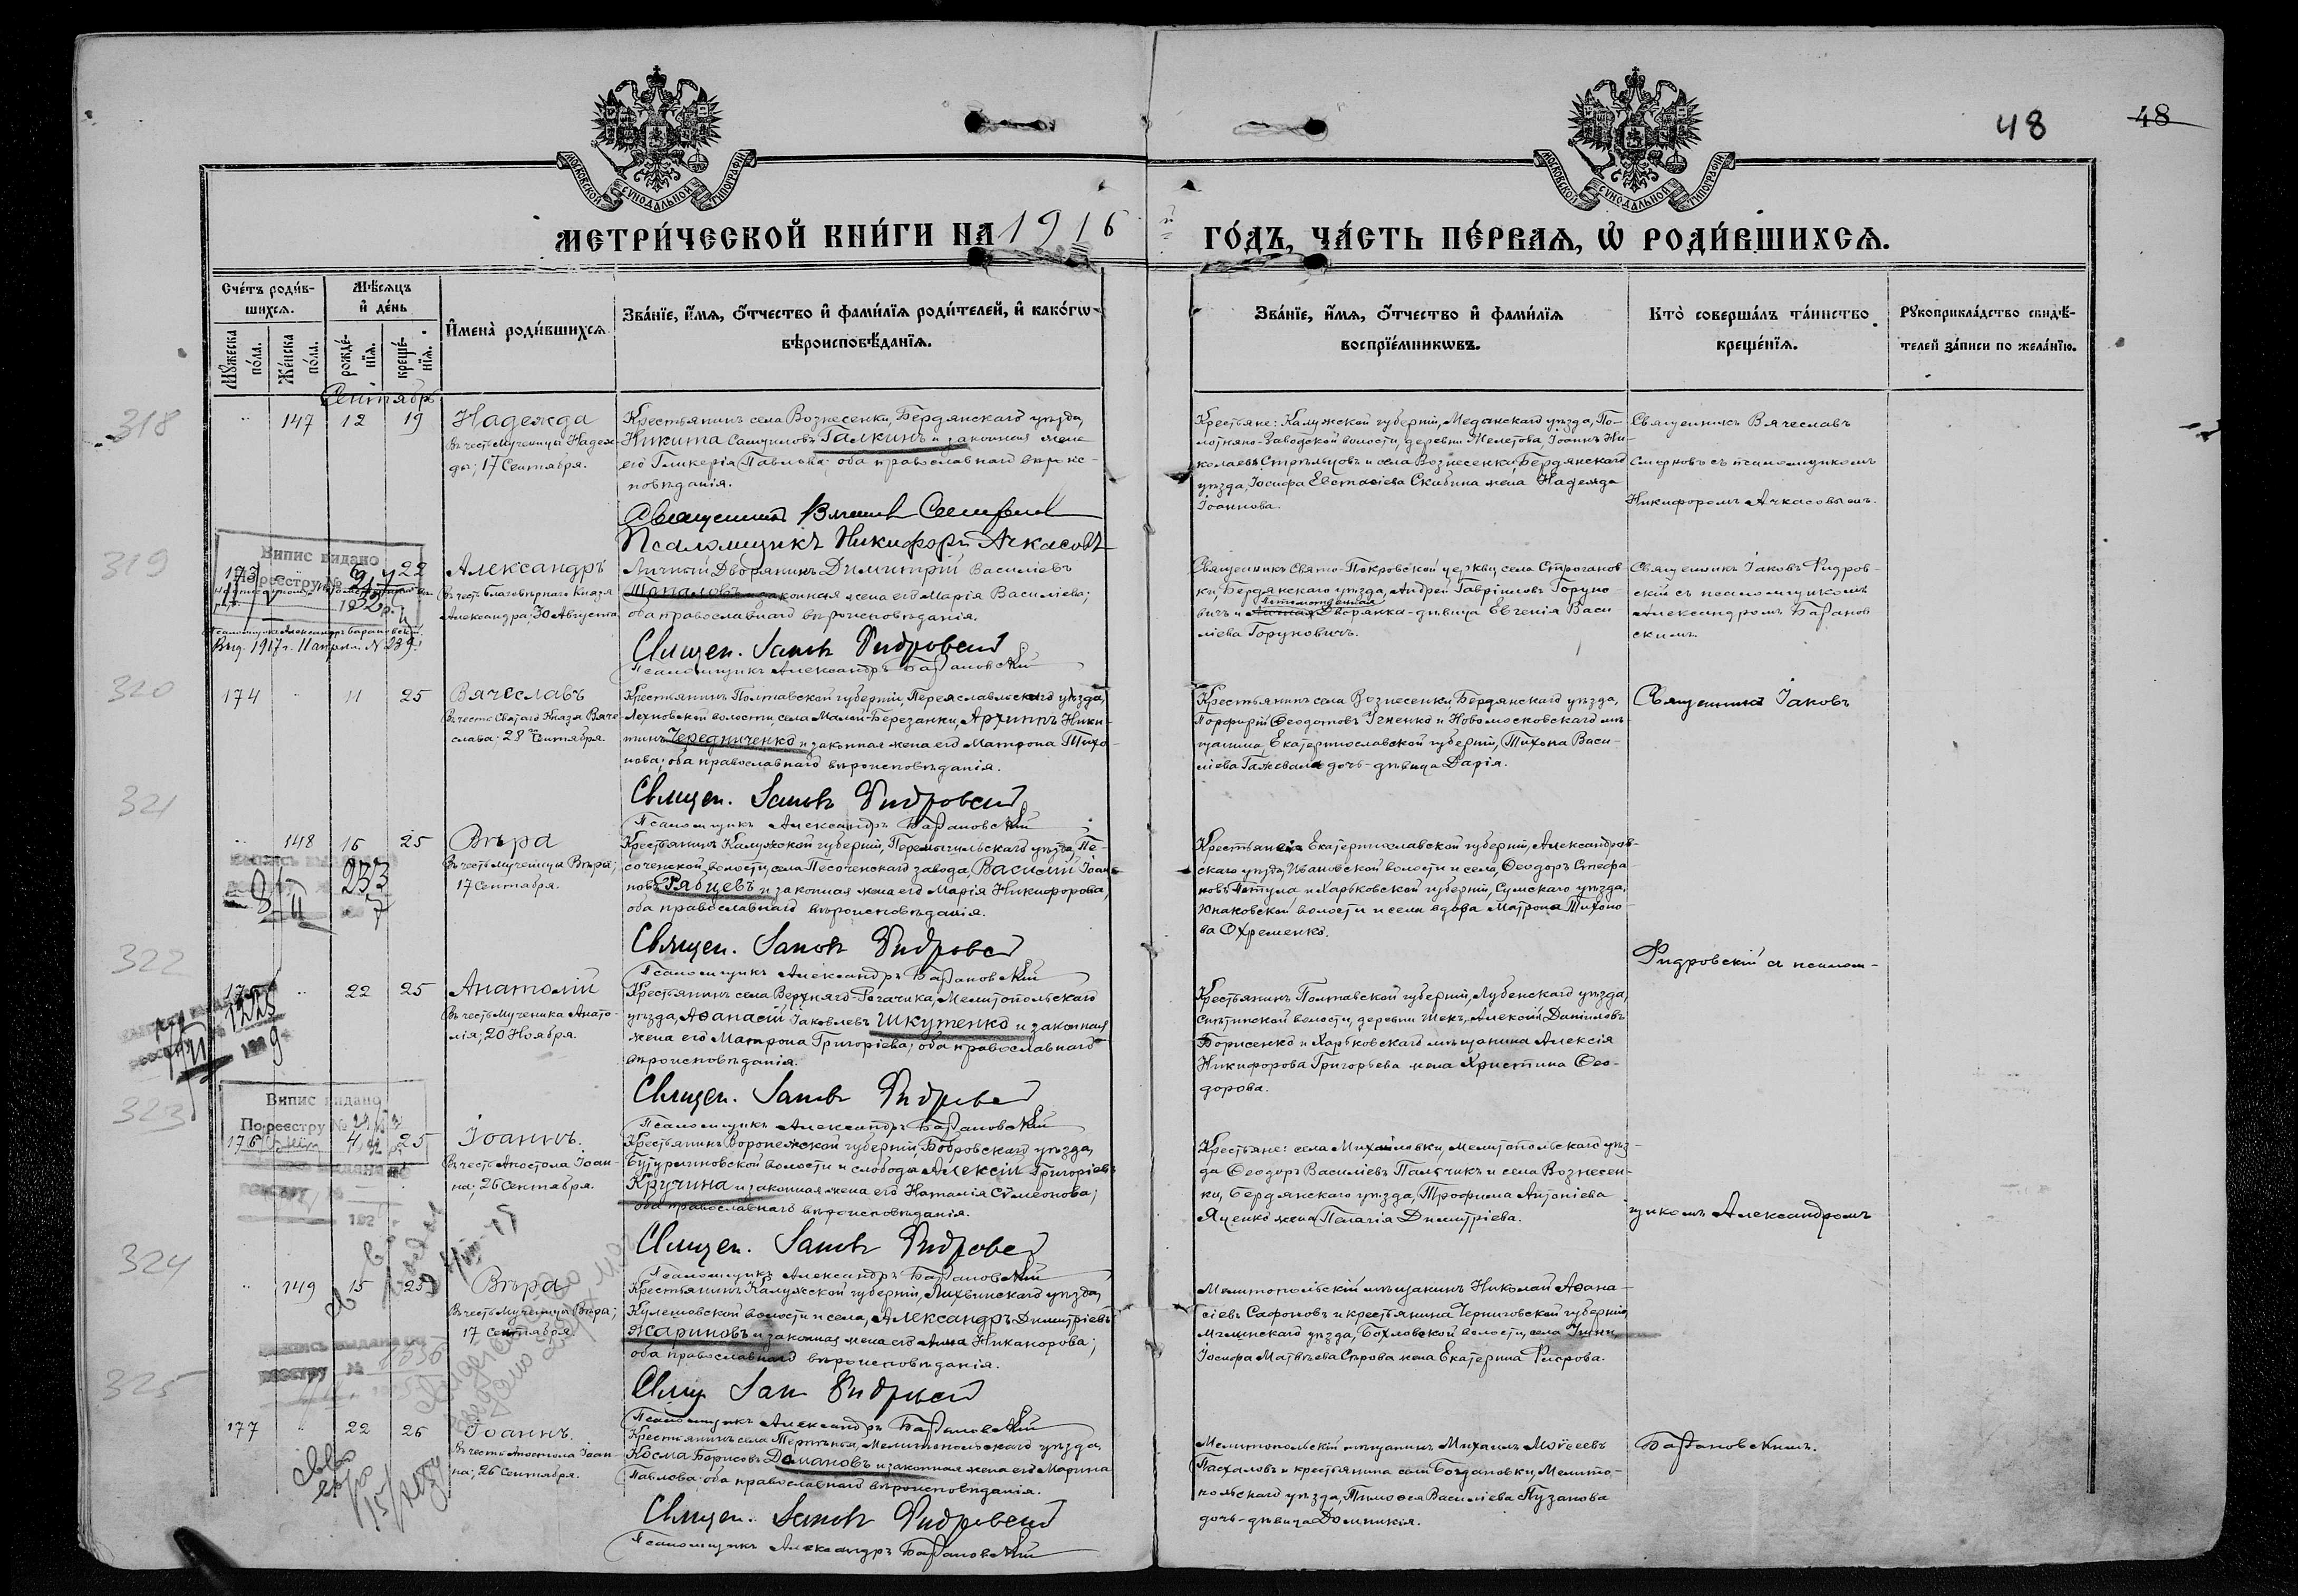 48
48
МОСКОВСКОЙ СѴНОДАЛЬНОЙ ТИПОГРАФІИ
МОСКОВСКОЙ СѴНОДАЛЬНОЙ ТИПОГРАФІИ
МЕТРИ́ЧЕСКОЙ КНИ́ГИ НА 1916
ГО́ДЪ, ЧА́СТЬ ПЕ́РВАѦ, Ѽ РОДИ́ВШИХСѦ.
Сче́тъ роди́в-
шихсѧ.
Мѣ́сѧцъ
и҆ де́нь
Мꙋ́жеска
по́ла.
Же́нска
по́ла.
рожде́-
нїѧ.
креще́-
нїѧ.
И҆мена̀ роди́вшихсѧ
Зва́нїе, и҆́мѧ, ѻ҆́тчество и҆ фами́лїѧ роди́телей, и҆ како́гѡ
вѣроисповѣ́данїѧ.
Зва́нїе, и҆́мѧ, ѻ҆́тчество и҆ фами́лїѧ
воспрїе́мникѡвъ.
Кто̀ соверша́лъ та́инство
креще́нїѧ.
Рꙋкоприкла́дство свидѣ́-
телей за́писи по жела́нїю.
Сентябрь
318
147 12 19
Надежда
Въ честь Мученицы Надеж-
ды; 17 Сентября.
Крестьянинъ села Вознесенки, Бердянскаго уѣзда,
Никита Самуиловъ Галкинъ и законная жена
его Гликерія Павлова; оба православнаго вѣроис-
повѣданія.
Псаломщикъ Никифоръ Ачкасовъ
Крестьяне: Калужской губерніи, Медынскаго уѣзда, По-
лотняно-Заводской волости, деревни Мелетова, Іоаннъ Ни-
колаевъ Стрѣльцовъ и села Вознесенки, Бердянскаго
уѣзда, Іосифа Евстасіева Скибина жена Надежда
Іоаннова.
Священникъ Вячеславъ
Смирновъ съ псаломщикомъ
Никифоромъ Ачкасовымъ.
319
Випис видано
По реєстру №
22
Александръ
Въ честь Благовѣрнаго Князя
Александра; 30 Августа
Личный Дворянинъ Димитрій Василіевъ
и законная жена его Марія Василіева;
оба православнаго вѣроисповѣданія.
Священ. Іаковъ Фидровскій
Псаломщикъ Александръ Барановскій
Выд. 1917 г. 11 апрѣля. № 239.
Священникъ Свято-Покровской церкви, села Строганов
ки, Бердянскаго уѣзда, Андрей Гавріиловъ Горуно
вичъ и Дворянка-дѣвица Евгенія Васи
ліева Горуновичъ.
Священникъ Іаковъ Фидров-
скій съ псаломщикомъ
Александромъ Баранов
скимъ.
320
174 11 25
Вячеславъ
Въ честь Святаго Князя Вяче
слава; 28 Сентября.
Крестьянинъ Полтавской губерніи, Переяславльскаго уѣзда,
волости, села Малой-Березанки, Архиппъ Ники-
тинъ Чередниченко и законная жена его Матрона Тихо-
нова; оба православнаго вѣроисповѣданія.
Священ. Іаковъ Фидровскій
Псаломщикъ Александръ Барановскій
Крестьянинъ села Вознесенки, Бердянскаго уѣзда,
Порфирій Ѳеодотовъ и Новомосковскаго мѣ
щанина, Екатеринославской губерніи, Тихона Васи-
ліева дочь-дѣвица Дарія.
Священникъ Іаковъ
321
148 16 25
Вѣра
Въ честь Мученицы Вѣры;
17 Сентября.
233
Крестьянинъ Калужской губерніи, Перемышльскаго уѣзда, Пе-
соченской волости, села Песоченскаго завода, Василій Іоан-
новъ Рябцевъ и законная жена его Марія Никифорова,
оба православнаго вѣроисповѣданія.
Священ. Іаковъ Фидровскій
Псаломщикъ Александръ Барановскій
Крестьяне Екатеринославской губерніи, Александров-
скаго уѣзда, Ивановской волости и села, Ѳеодоръ Стефа-
новъ и Харьковской губерніи, Сумскаго уѣзда,
Юнаковской волости и села вдова Матрона Тихоно-
ва Охременко.
322
22 25
Анатолій
Въ честь Мученика Анато-
лія; 20 Ноября.
Крестьянинъ села Верхняго-Рогачика, Мелитопольскаго
уѣзда, Аѳанасій Іаковлевъ Шкутенко и законная
жена его Матрона Григоріева; оба православнаго
вѣроисповѣданія.
Священ. Іаковъ Фидровскій
Псаломщикъ Александръ Барановскій
Крестьянинъ Полтавской губерніи, Лубенскаго уѣзда,
волости, деревни Шекъ, Алексій Даніиловъ
Борисенко и Харьковскаго мѣщанина Алексія
Никифорова Григорьева жена Христина Ѳео-
дорова.
Фидровскій съ псалом-
323
Випис видано
По реєстру №
176 25
Іоаннъ.
Въ честь Апостола Іоан-
на; 26 Сентября.
Крестьянинъ Воронежской губерніи, Бобровскаго уѣзда,
Бутурлиновской волости и слободы Алексій Григоріевъ
Кручина и законная жена его Наталія Сѵмеонова;
оба православнаго вѣроисповѣданія.
Священ. Іаковъ Фидровскій
Псаломщикъ Александръ Барановскій
Крестьяне: села Михайловки, Мелитопольскаго уѣз-
да Ѳеодоръ Василіевъ Пальчикъ и села Вознесен-
ки, Бердянскаго уѣзда, Трофима Антоніева
Яценко жена Пелагія Димитріева.
щикомъ Александромъ
324
149 15 25
Вѣра
Въ честь Мученицы Вѣры;
17 Сентября.
Крестьянинъ Калужской губерніи, Лихвинскаго уѣзда,
Кулешовской волости и села, Александръ Димитріевъ
Жариновъ и законная жена его Анна Никанорова;
оба православнаго вѣроисповѣданія.
Псаломщикъ Александръ Барановскій
Мелитопольскій мѣщанинъ Николай Аѳана-
сіевъ Сафоновъ и крестьянина Черниговской губерніи,
Мглинскаго уѣзда, волости, села
Іосифа Матвѣева Сѣрова жена Екатерина
325
177 22 26
Іоаннъ.
Въ честь Апостола Іоан-
на; 26 Сентября.
Крестьянинъ села Терпѣнья, Мелитопольскаго уѣзда,
Косма Борисовъ Домановъ и законная жена его Марина
Павлова; оба православнаго вѣроисповѣданія.
Священ. Іаковъ Фидровскій
Псаломщикъ Александръ Барановскій
Мелитопольскій мѣщанинъ Михаилъ Моѵсеевъ
Пасхаловъ и крестьянина села Богдановки, Мелито-
польскаго уѣзда, Тимоѳея Василіева Пузанова
дочь-дѣвица Домникія.
Барановскимъ.